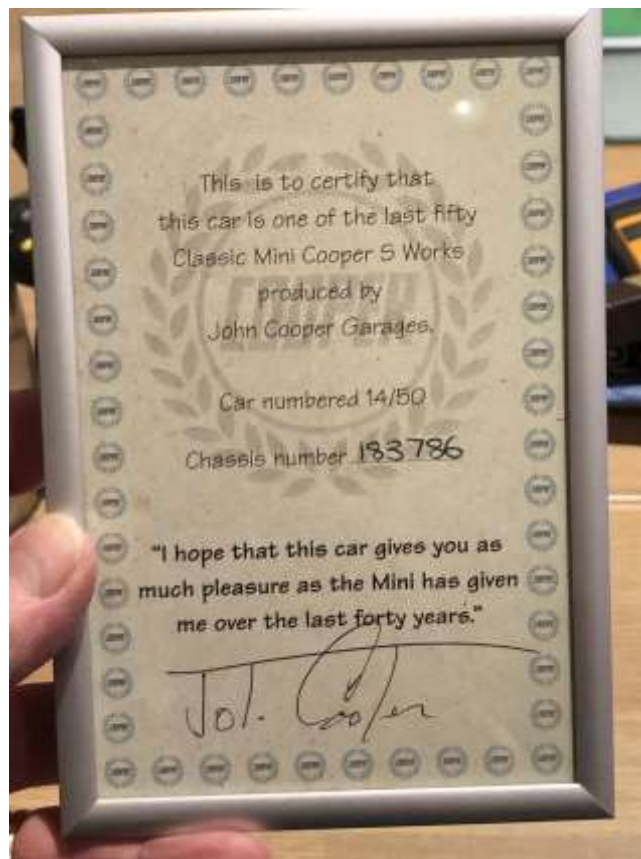 This is to certify that
this car is one of the last fifty
Classic Mini Cooper S Works
produced by
John Cooper Garages.
COOPER
Car numbered 14/50
Chassis number 183786
"I hope that this car gives you as
much pleasure as the Mini has given
me over the last forty years."
John Cooper